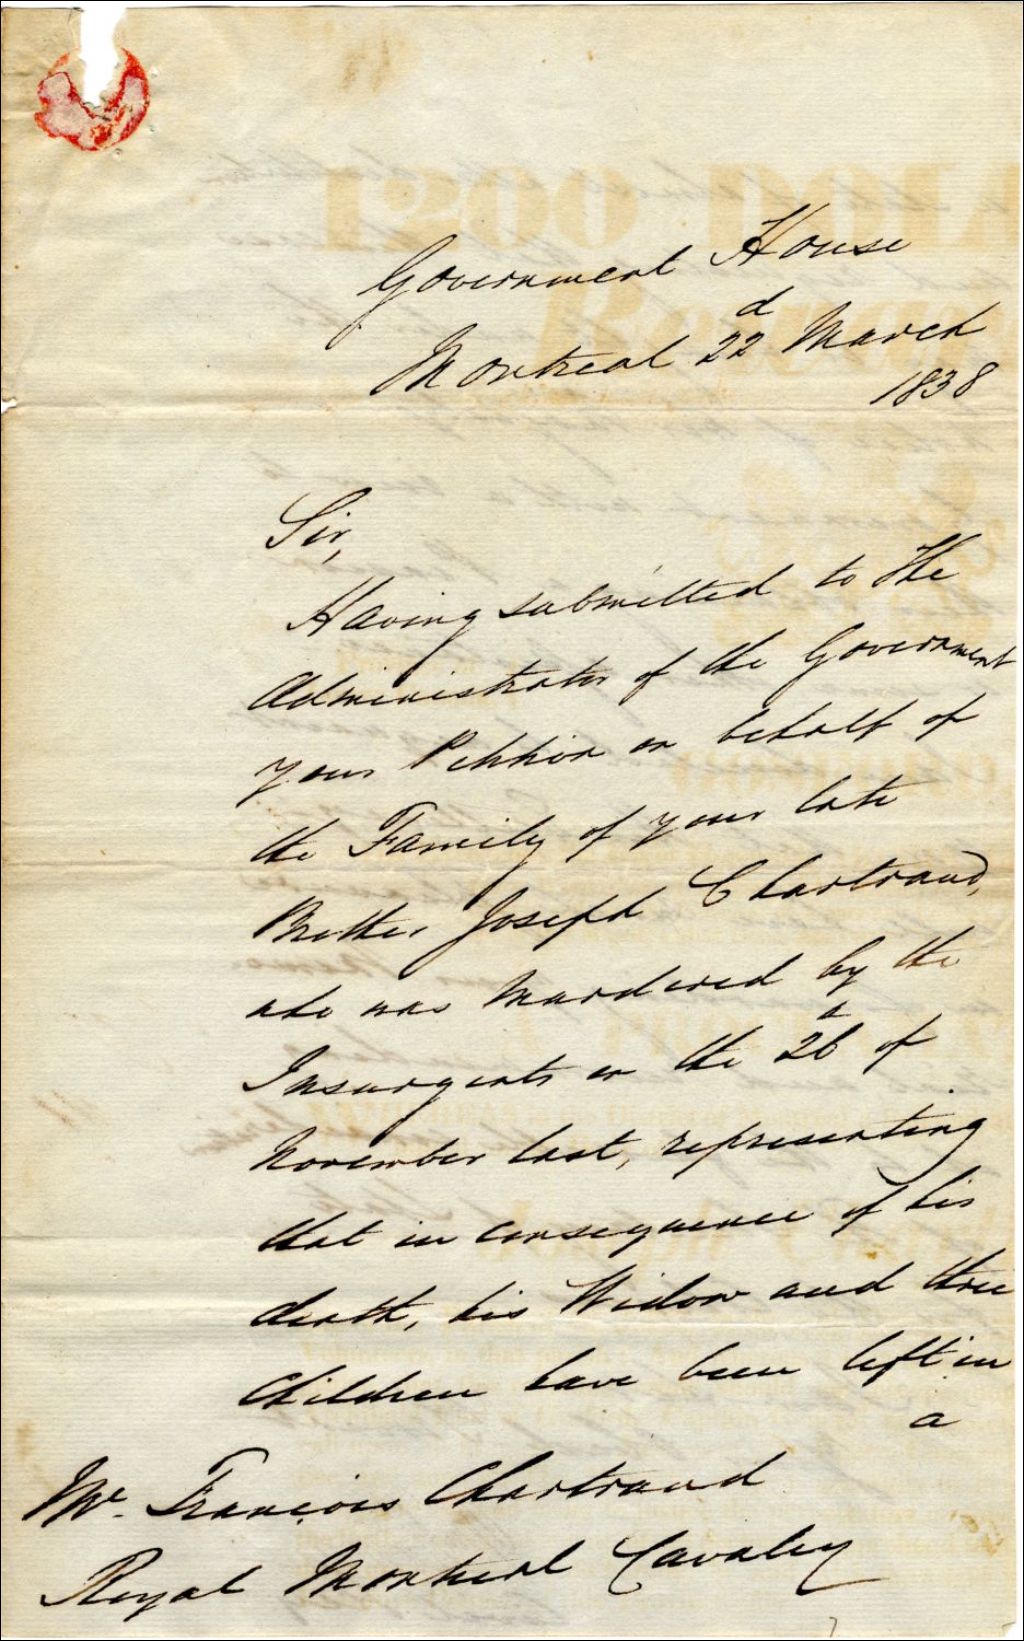 Government House
Montreal 22d March
1838
Sir,
Having submitted to The
Administrator of the Government
your Petition on behalf of
the Family of your late
Brother Joseph Chartrand,
who was Murdered by the
Insurgents on the 26 of
November last, representing
that in consequence of his
death, his Widow and three
Children have been left in
a
Mr. François Chartrand
Royal Montreal Cavalry